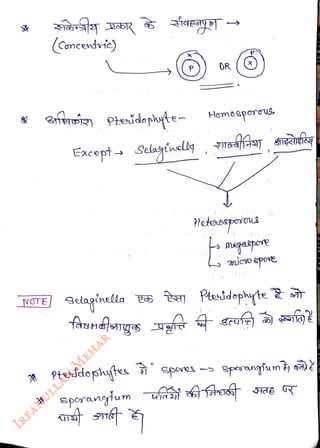 * संकेन्द्रीय प्रकार के संवहनपूल →
(Concentric)
X P OR P X
* अधिकांश Pteridophyte - Homosporous
Except → Selaginella, साल्वीनिया,
Heterosporous
→ megaspore
→ microspore
NOTE Selaginella एक ऐसा Pteridophyte है जो
विषमबीजाणुक प्रवृत्ति की उत्पत्ति को दर्शाता है
* Pteridophytes में spores → sporangium में बनते है
* sporangium पत्तियों की निचली सतह पर
पायी जाती है।
IRFANULLAH MEHAR